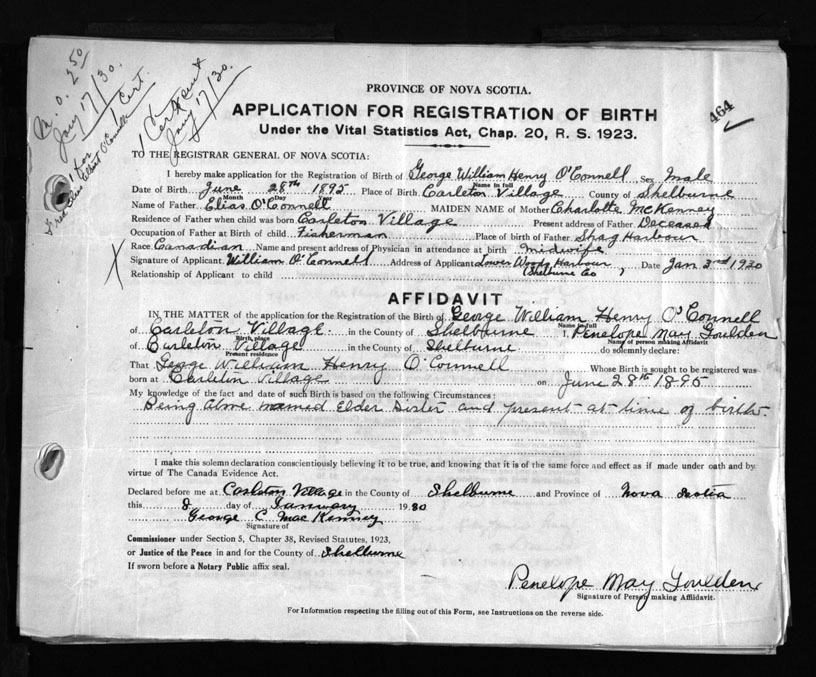 M. O. 2.50
Jany 17/30.
1 Cert.
for
Fred Elias Elbert O'Connell
1 Cert sent
Jany 17/30.
464
PROVINCE OF NOVA SCOTIA.
APPLICATION FOR REGISTRATION OF BIRTH
Under the Vital Statistics Act, Chap. 20, R. S. 1923.
TO THE REGISTRAR GENERAL OF NOVA SCOTIA:
I hereby make application for the Registration of Birth of George William Henry O'Connell Sex Male
Name in full
Date of Birth June 28th 1895 Place of Birth Carleton Village County of Shelburne
Month Day
Name of Father Elias O'Connell MAIDEN NAME of Mother Charlotte McKenney
Residence of Father when child was born Carleton Village Present address of Father Deceased
Occupation of Father at Birth of child Fisherman Place of birth of Father Shag Harbour
X
Race Canadian Name and present address of Physician in attendance at birth midwife
Signature of Applicant William O'Connell Address of Applicant Lower Woods Harbour, Date Jan 3rd 1930
Shelburne Co
Relationship of Applicant to child
AFFIDAVIT
IN THE MATTER of the application for the Registration of the Birth of George William Henry O'Connell
Name in full
of Carleton Village in the County of Shelbourne I, Penelope May Goulden
Birth place Name of person making Affidavit
of Carleton Village in the County of Shelburne do solemnly declare:
Present residence
That George William Henry O'Connell Whose Birth is sought to be registered was
born at Carleton Village on June 28th 1895
My knowledge of the fact and date of such Birth is based on the following Circumstances:
Being above named Elder Sister and present at time of birth.
I make this solemn declaration conscientiously believing it to be true, and knowing that it is of the same force and effect as if made under oath and by
virtue of The Canada Evidence Act.
Declared before me at Carleton Village in the County of Shelburne and Province of Nova Scotia
this 8 day of January 1930
George C. MacKenney
Signature of
Commissioner under Section 5, Chapter 38, Revised Statutes, 1923,
or Justice of the Peace in and for the County of Shelburne
If sworn before a Notary Public affix seal.
Penelope May Goulden
Signature of Person making Affidavit.
For Information respecting the filling out of this Form, see Instructions on the reverse side.